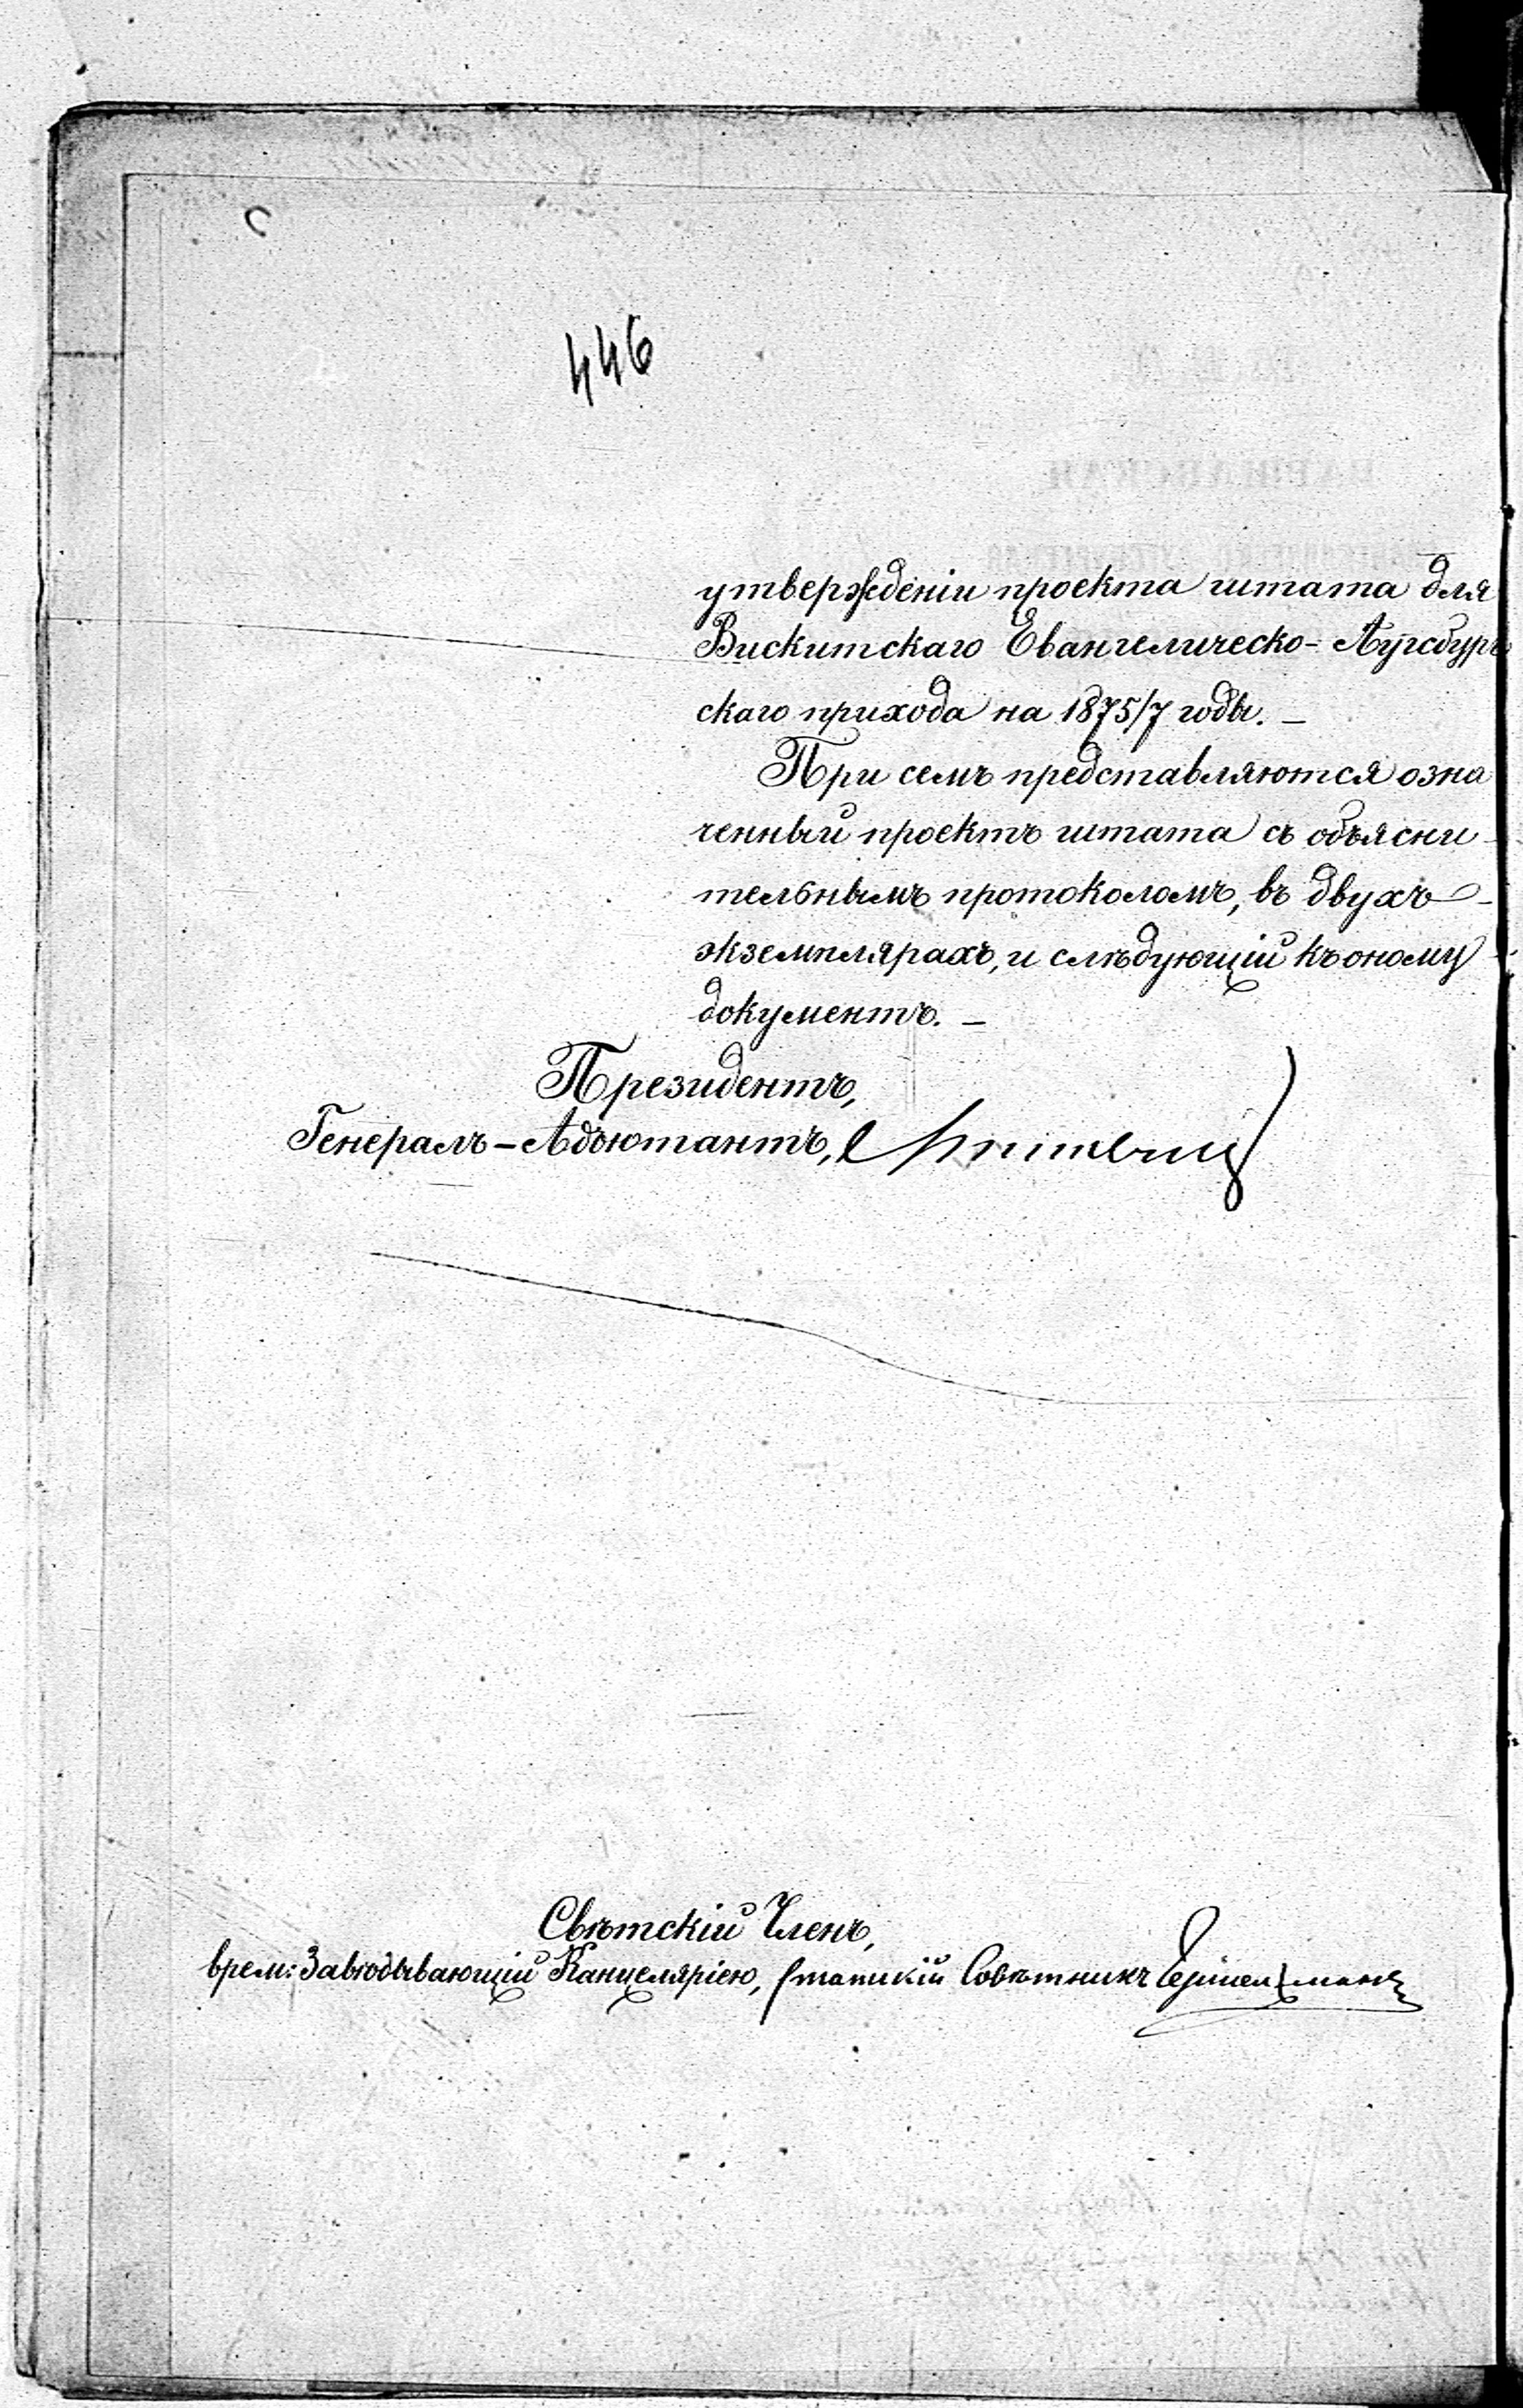 446
утвержденіи проекта штата для
Вискитскаго Евангелическо-Аугсбург
скаго прихода на 1875/7 годы. —
При семъ представляются озна
ченный проектъ штата съ объясни
тельнымъ протоколомъ, въ двухъ
экземплярахъ, и слѣдующій къ оному
документъ. —
Президентъ,
Генералъ-Адъютантъ,
Свѣтскій Членъ,
врем: Завѣдывающій Канцеляріею, Статскій Совѣтникъ